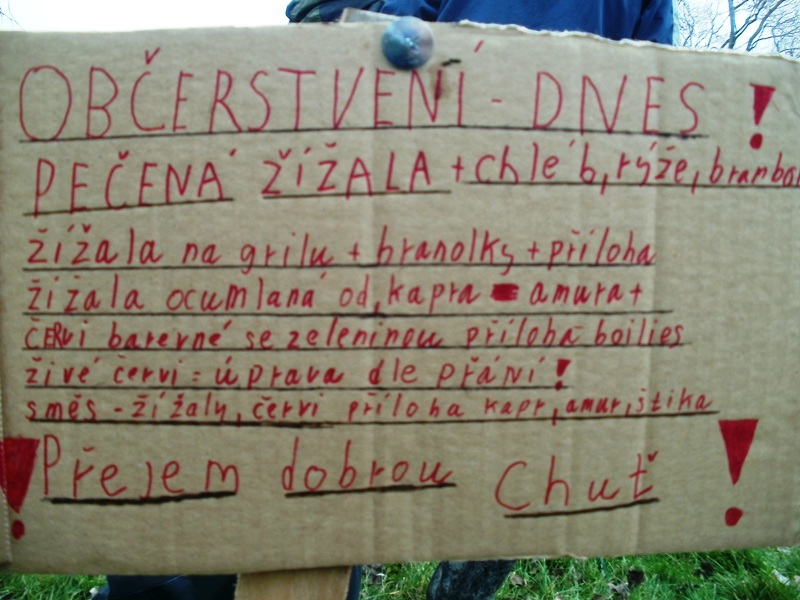 OBČERSTVENÍ - DNES !
PEČENÁ ŽÍŽALA + chléb, rýže, brambor
žížala na grilu + hranolky + příloha
žížala ocumlaná od, kapra amura +
ČERVi barevné se zeleninou příloha boilies
živé červi = úprava dle přání !
směs - žížaly, červi příloha kapr, amur, štika
! Přejem dobrou chuť !